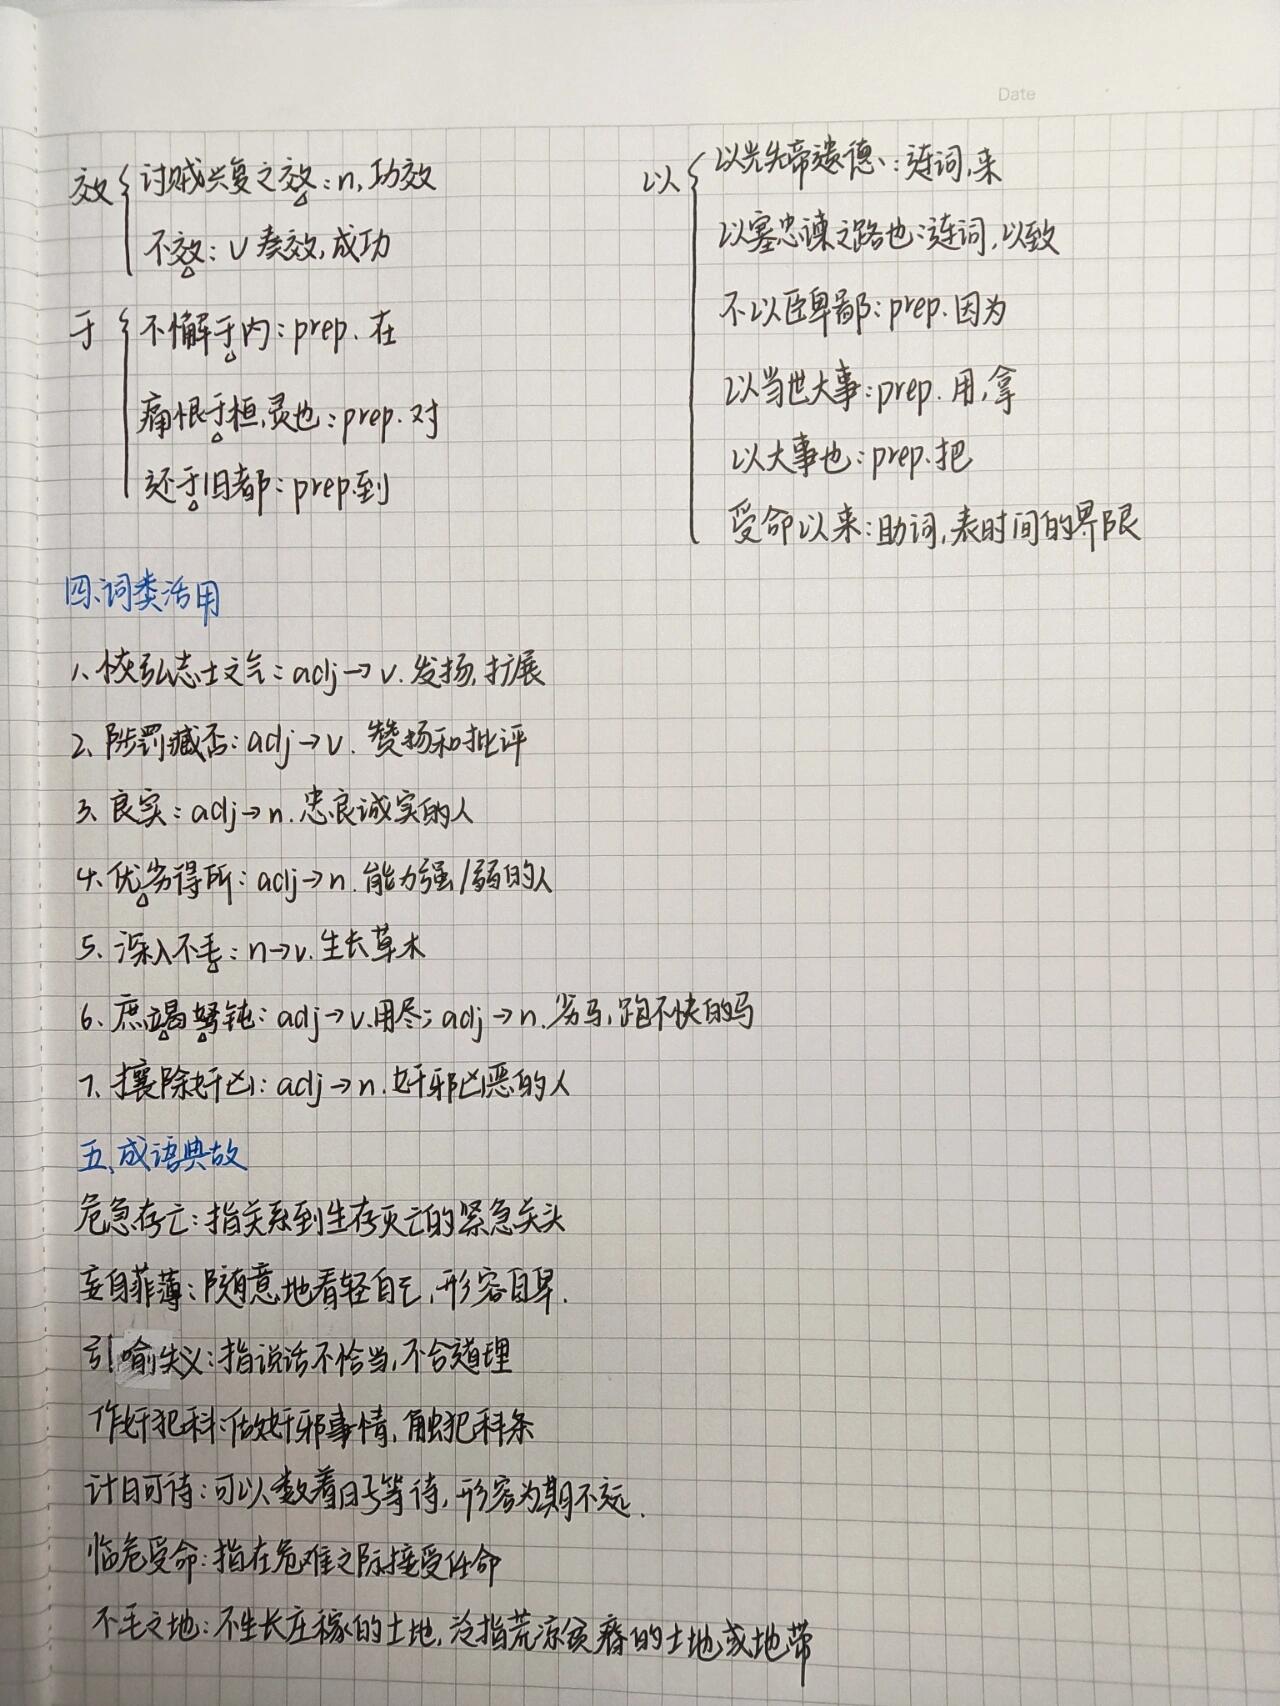 Date
效
讨贼兴复之效：n，功效
不效：v 奏效，成功
于
不懈于内：prep. 在
痛恨于桓，灵也：prep. 对
还于旧都：prep.到
以
以光先帝遗德、：连词，来
以塞忠谏之路也：连词，以致
不以臣卑鄙：prep.因为
以当世大事：prep. 用，拿
以大事也：prep.把
受命以来：助词，表时间的界限
四、词类活用
1、恢弘志士之气：adj→v. 发扬，扩展
2、陟罚臧否：adj→v. 赞扬和批评
3、良实：adj→n.忠良诚实的人
4、优劣得所：adj→n. 能力强/弱的人
5、深入不毛：n→v.生长草木
6、庶竭驽钝：adj→v.用尽；adj→n.劣马，跑不快的马
7、攘除奸凶：adj→n.奸邪凶恶的人
五、成语典故
危急存亡：指关系到生存灭亡的紧急关头
妄自菲薄：随意地看轻自己，形容自卑.
引喻失义：指说话不恰当，不合道理
作奸犯科：做奸邪事情，触犯科条
计日可待：可以数着日子等待，形容为期不远.
临危受命：指在危难之际接受任命
不毛之地：不生长庄稼的土地，泛指荒凉贫瘠的土地或地带